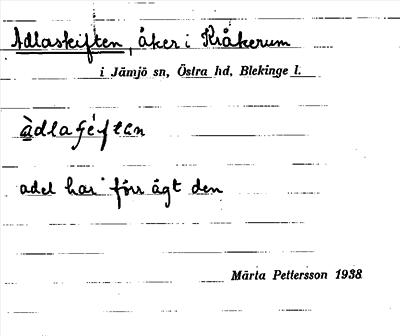 Adlaskiften, åker i Kråkerum
i Jämjö sn, Östra hd, Blekinge l.
adel har förr ägt den
Märta Pettersson 1938